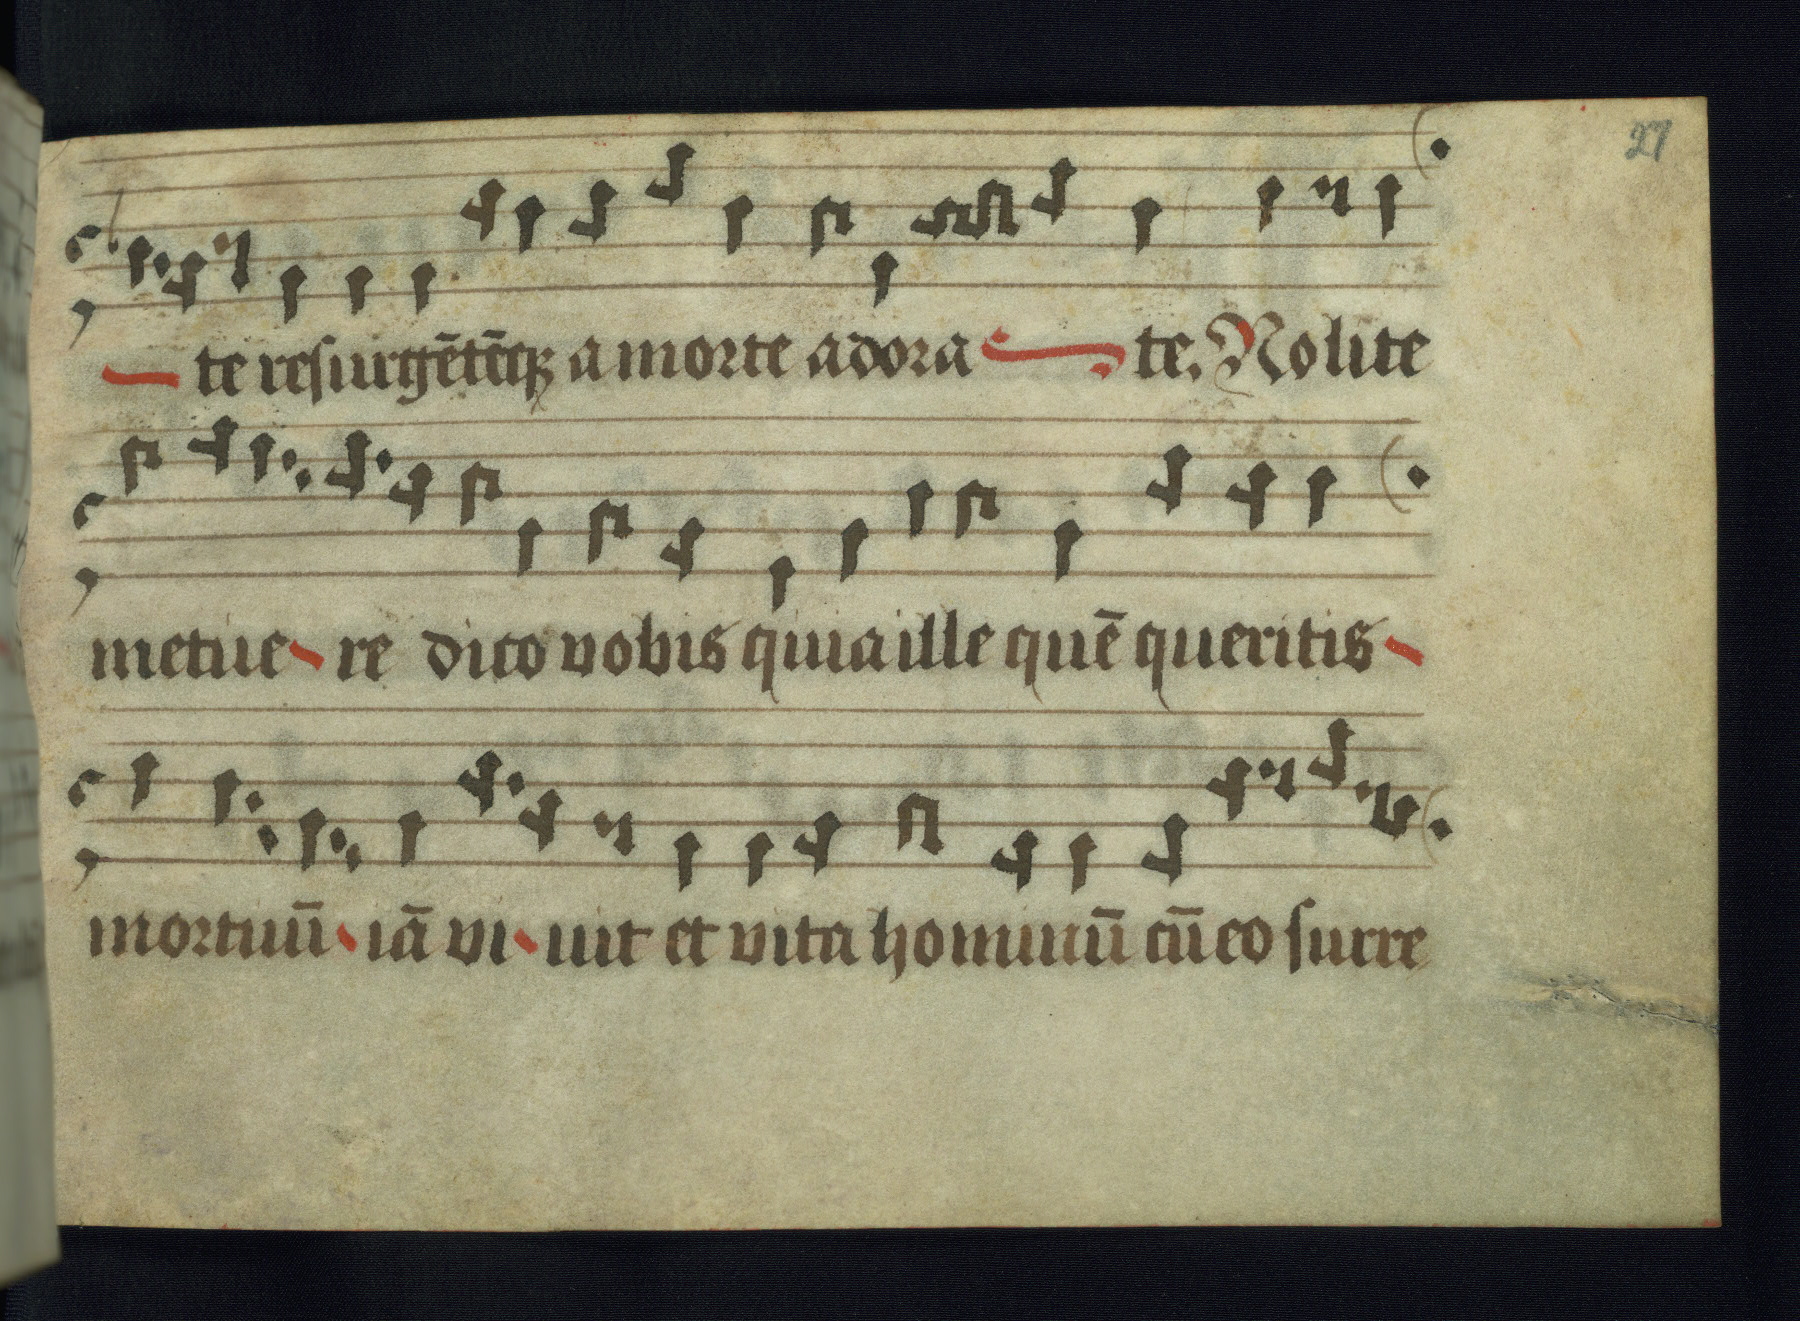 27
te resurgētēqꝫ a morte adora te. Nolite
metue re dico vobis quia ille quē queritis
mortuū iā vi uit et vita hominū cū eo surre